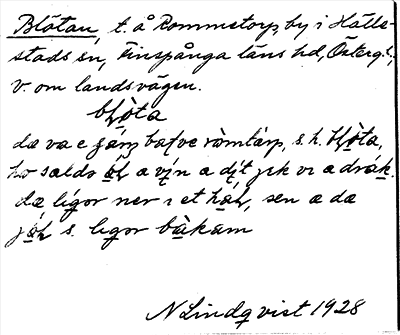 Blötan, t. å Rommetorp, by i Hälle-
stads sn, Finspånga läns hd, Östergl.,
v. om landsvägen.
bḷòta
dæ va e gáṃ ba ve ròmtàrp, s. h. bḷòta,
ho saldo öḷ a vín a dít jek vi a drák.
dæ lígor ner i et hàḷ, sen æ dæ
jöḷ s. ligor bàkam
N Lindqvist 1928